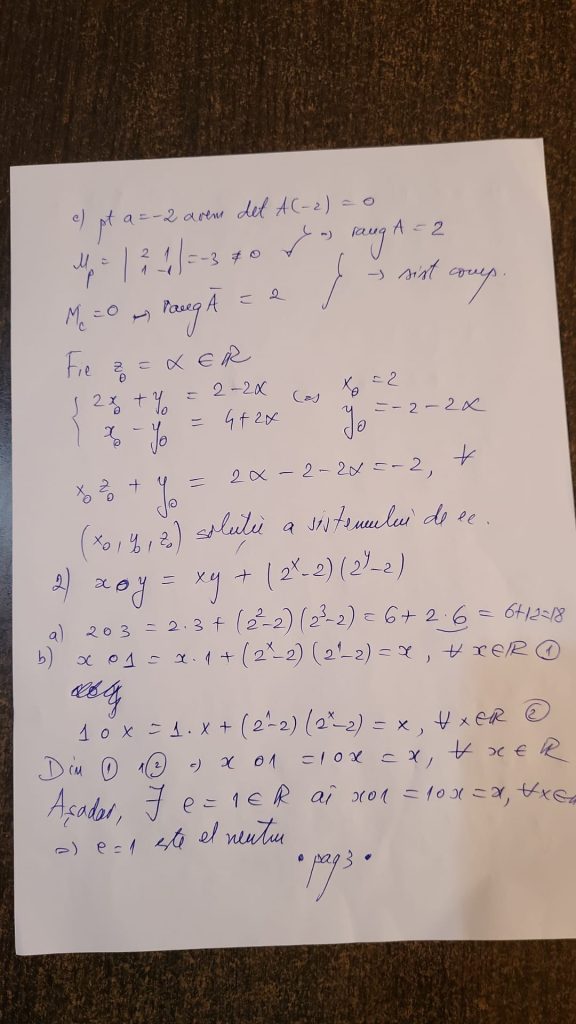 c) pt a=-2 avem det A(-2) = 0
Mp = | 2 1 ; 1 -1 | = -3 ≠ 0 ⇒ rang A = 2
Mc = 0 ⇒ rang Ā = 2 → sist comp.
Fie z₀ = α ∈ ℝ
{ 2x₀ + y₀ = 2-2α ⇔ x₀ = 2
x₀ - y₀ = 4+2α y₀ = -2-2α
x₀z₀ + y₀ = 2α - 2 - 2α = -2, ∀
(x₀, y₀, z₀) soluții a sistemului de ec.
2) x∘y = xy + (2^x-2)(2^y-2)
a) 2∘3 = 2·3 + (2²-2)(2³-2) = 6 + 2·6 = 6+12=18
b) x∘1 = x·1 + (2^x-2)(2^1-2) = x, ∀ x∈ℝ ①
1∘x = 1·x + (2^1-2)(2^x-2) = x, ∀ x∈ℝ ②
Din ① ② ⇒ x∘1 = 1∘x = x, ∀ x ∈ ℝ
Așadar, ∃ e = 1 ∈ ℝ aî x∘1 = 1∘x = x, ∀x∈ℝ
⇒ e=1 este el neutru
• pag 3 •